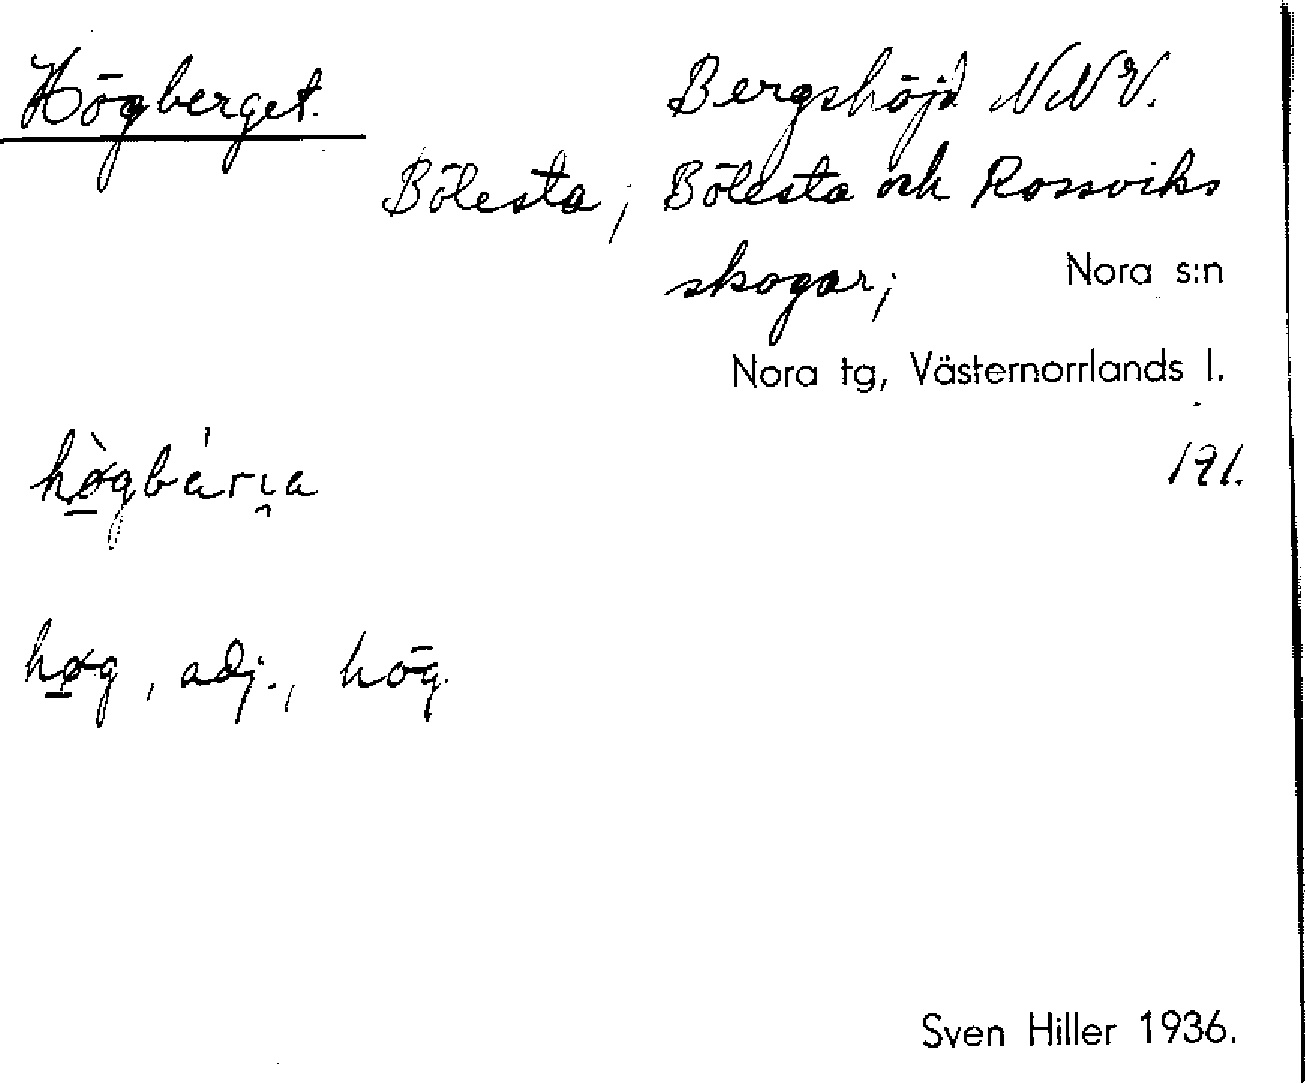 Högberget. Bergshöjd NNV.
Bölesta; Bölesta och Rossviks
skogar; Nora s:n
Nora tg, Västernorrlands l.
191.
hø̀gbárɪa
høg, adj., hög.
Sven Hiller 1936.